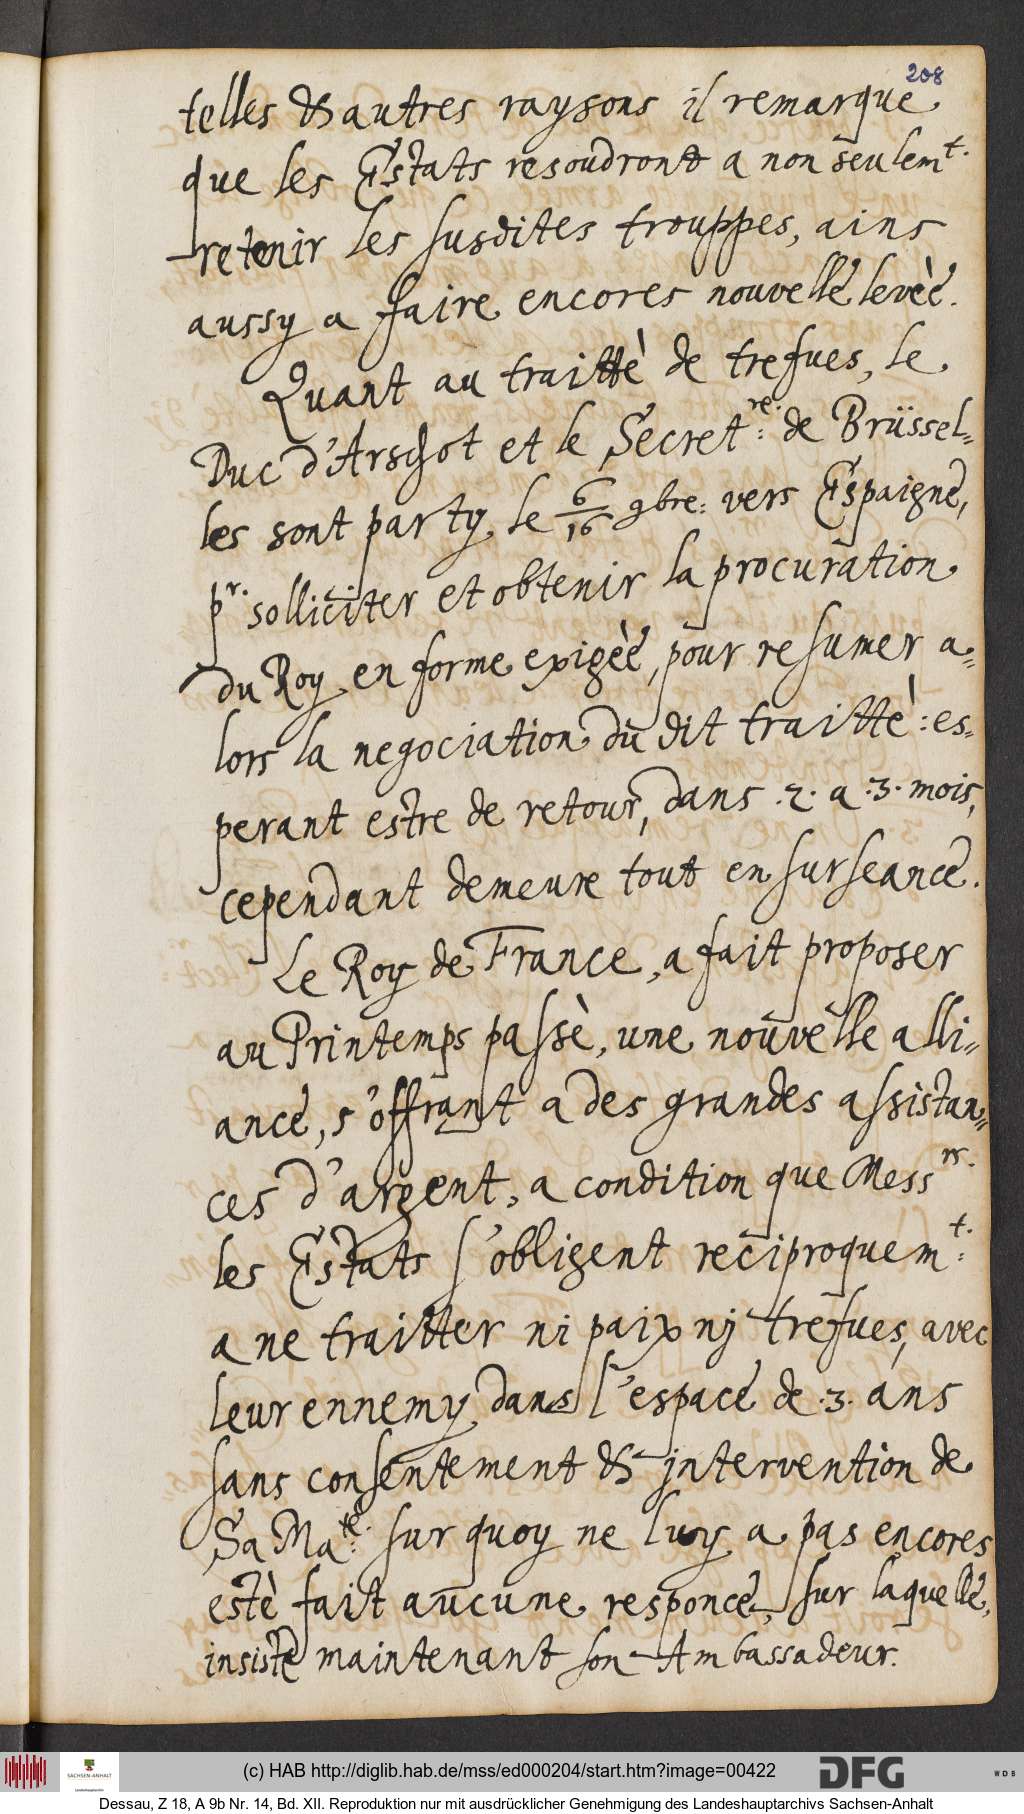 208
telles & autres raysons il remarque
que les Estats resoudront a non seulem.t
retenir les susdites trouppes, ains
aussy a faire encores nouvelle levèe.
Quant au traittè de trefues, le
Duc d'Arschot et le Secret.re: de Brüssel=
les sont party, le 6/16 9bre: vers Espaigne,
pr. solliciter et obtenir la procuration
du Roy en forme exigèe, pour resumer a=
lors la negociation du dit traittè: es=
perant estre de retour, dans .2. a .3. mois,
cependant demeure tout en surseance.
Le Roy de France, a fait proposer
au Printemps passè, une nouvelle alli=
ance, s'offrant a des grandes assistan=
ces d'argent, a condition que Mess.rs
les Estats s'obligent reciproquem.t:
a ne traitter ni paix nj trefues, avec
leur ennemy dans l'espace de .3. ans
sans consentement & jntervention de
Sa Ma.te: sur quoy ne luy a pas encores
estè fait aucune responce, sur laquelle,
insiste maintenant son Ambassadeur.
SACHSEN-ANHALT
Landeshauptarchiv
(c) HAB http://diglib.hab.de/mss/ed000204/start.htm?image=00422
DFG
WDB
Dessau, Z 18, A 9b Nr. 14, Bd. XII. Reproduktion nur mit ausdrücklicher Genehmigung des Landeshauptarchivs Sachsen-Anhalt